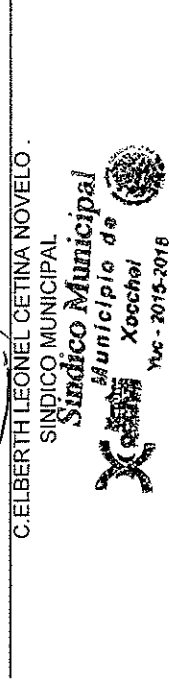 C.ELBERTH LEONEL CETINA NOVELO.
SINDICO MUNICIPAL
Sindico Municipal
Municipio de
Xocchel
Yuc - 2015-2018